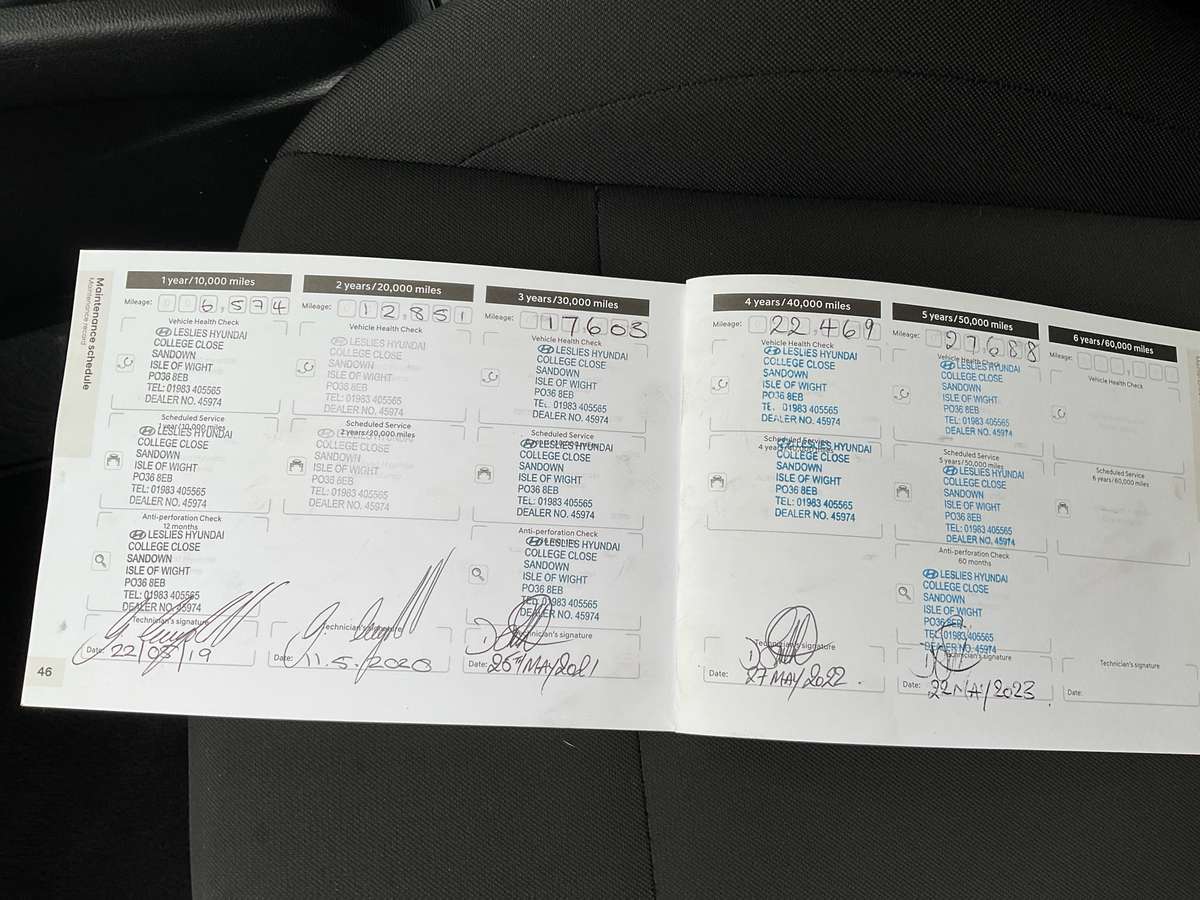 Maintenance schedule
Maintenance record
1 year/10,000 miles
Mileage: 6,574
Vehicle Health Check
LESLIES HYUNDAI
COLLEGE CLOSE
SANDOWN
ISLE OF WIGHT
PO36 8EB
TEL: 01983 405565
DEALER NO. 45974
Scheduled Service
1 year/10,000 miles
LESLIES HYUNDAI
COLLEGE CLOSE
SANDOWN
ISLE OF WIGHT
PO36 8EB
TEL: 01983 405565
DEALER NO. 45974
Anti-perforation Check
12 months
LESLIES HYUNDAI
COLLEGE CLOSE
SANDOWN
ISLE OF WIGHT
PO36 8EB
TEL: 01983 405565
DEALER NO. 45974
Technician's signature
Date: 22/05/19
46
2 years/20,000 miles
Mileage: 12,851
Vehicle Health Check
LESLIES HYUNDAI
COLLEGE CLOSE
SANDOWN
ISLE OF WIGHT
PO36 8EB
TEL: 01983 405565
DEALER NO. 45974
Scheduled Service
2 years/20,000 miles
LESLIES HYUNDAI
COLLEGE CLOSE
SANDOWN
ISLE OF WIGHT
PO36 8EB
TEL: 01983 405565
DEALER NO. 45974
Technician's signature
Date: 11.5.2020
3 years/30,000 miles
Mileage: 17603
Vehicle Health Check
LESLIES HYUNDAI
COLLEGE CLOSE
SANDOWN
ISLE OF WIGHT
PO36 8EB
TEL: 01983 405565
DEALER NO. 45974
Scheduled Service
LESLIES HYUNDAI
COLLEGE CLOSE
SANDOWN
ISLE OF WIGHT
PO36 8EB
TEL: 01983 405565
DEALER NO. 45974
Anti-perforation Check
LESLIES HYUNDAI
COLLEGE CLOSE
SANDOWN
ISLE OF WIGHT
PO36 8EB
TEL: 01983 405565
DEALER NO. 45974
Technician's signature
Date: 26TH MAY 2021
4 years/40,000 miles
Mileage: 22,469
Vehicle Health Check
LESLIES HYUNDAI
COLLEGE CLOSE
SANDOWN
ISLE OF WIGHT
PO36 8EB
TE. 01983 405565
DEALER NO. 45974
Scheduled Service
LESLIES HYUNDAI
COLLEGE CLOSE
SANDOWN
ISLE OF WIGHT
PO36 8EB
TEL: 01983 405565
DEALER NO. 45974
Technician's signature
Date: 27 MAY/2022.
5 years/50,000 miles
Mileage: 27688
Vehicle Health Check
LESLIES HYUNDAI
COLLEGE CLOSE
SANDOWN
ISLE OF WIGHT
PO36 8EB
TEL: 01983 405565
DEALER NO. 45974
Scheduled Service
5 years/50,000 miles
LESLIES HYUNDAI
COLLEGE CLOSE
SANDOWN
ISLE OF WIGHT
PO36 8EB
TEL: 01983 405565
DEALER NO. 45974
Anti-perforation Check
60 months
LESLIES HYUNDAI
COLLEGE CLOSE
SANDOWN
ISLE OF WIGHT
PO36 8EB
TEL: 01983 405565
DEALER NO. 45974
Technician's signature
Date: 22 MAY/2023.
6 years/60,000 miles
Mileage:
Vehicle Health Check
Scheduled Service
6 years/60,000 miles
Technician's signature
Date: